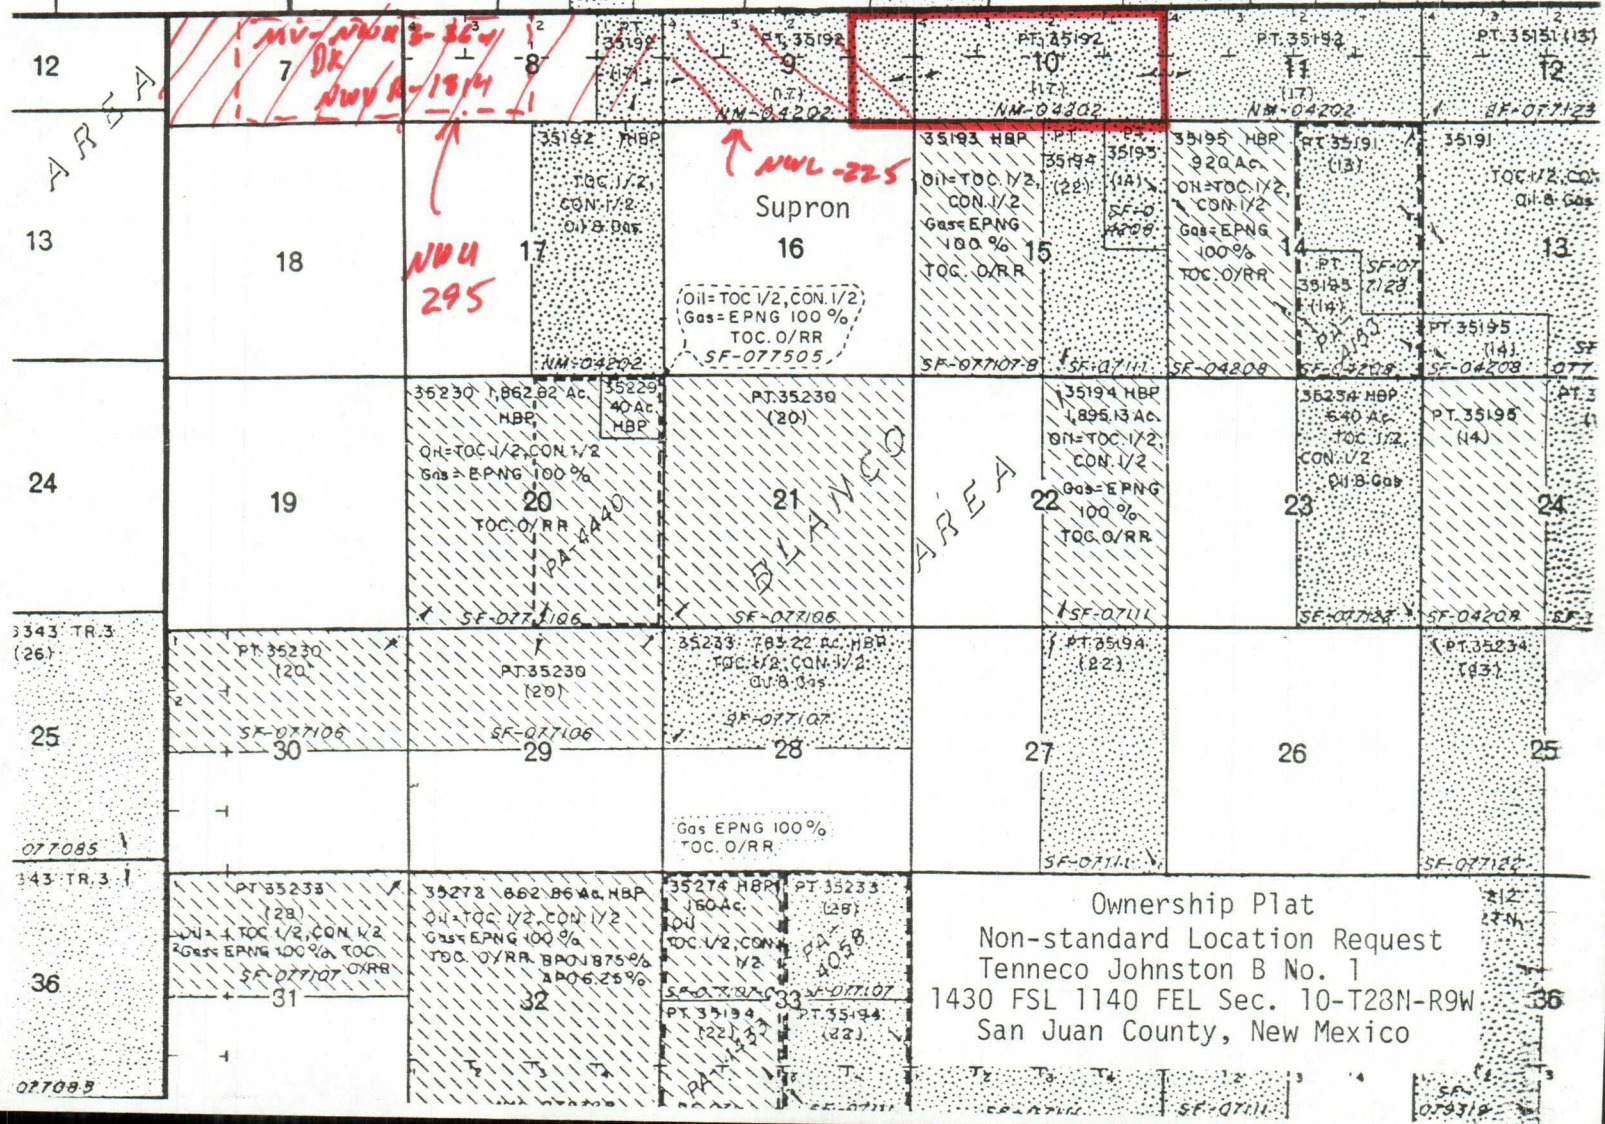 12
AREA
7
DK
8
PT. 35192
(17)
PT. 35192
9
(17)
NM-04202
PT. 35192
10
(17)
NM-04202
PT. 35192
11
(17)
NM-04202
PT. 35151 (13)
12
SF-077123
13
18
NWU
295
35192 HBP
TOC. 1/2,
CON. 1/2
Oil & Gas
17
NM-04202
NWL-225
Supron
16
Oil=TOC 1/2, CON. 1/2
Gas=EPNG 100%
TOC. O/RR
SF-077505
35193 HBP
Oil=TOC. 1/2,
CON. 1/2
Gas=EPNG
100%
TOC. O/RR
SF-077107-B
15
PT.
35194
(22)
SF-07111
PT.
35195
(14)
35195 HBP
920 Ac.
Oil=TOC. 1/2,
CON. 1/2
Gas=EPNG
100%
TOC. O/RR
SF-04208
14
PT. 35191
(13)
SF-07
7123
PT.
35195
(14)
SF-04208
35191
TOC. 1/2, CON.
Oil & Gas
13
PT. 35195
(14)
SF-04208
SF
077
24
19
35230 1,862.82 Ac.
HBP
35229
40 Ac.
HBP
Oil=TOC. 1/2, CON. 1/2
Gas=EPNG 100%
20
TOC. O/RR
PA-4440
SF-077106
PT. 35230
(20)
21
BLANCO
SF-077106
AREA
22
35194 HBP
1,895.13 Ac.
Oil=TOC. 1/2,
CON. 1/2
Gas=EPNG
100%
TOC. O/RR
SF-07111
23
35234 HBP
640 Ac.
TOC. 1/2,
CON. 1/2
Oil & Gas
SF-077122
PT. 35195
(14)
24
SF-04208
343 TR. 3
(26)
25
077085
PT. 35230
(20)
SF-077106
30
PT. 35230
(20)
SF-077106
29
35233 783.22 Ac. HBP
TOC. 1/2, CON. 1/2
Oil & Gas
SF-077107
28
Gas EPNG 100%
TOC. O/RR
27
PT. 35194
(22)
SF-07111
26
PT. 35234
(23)
25
SF-077122
343 TR. 3
36
077085
PT. 35233
(28)
Oil= TOC 1/2, CON 1/2
Gas=EPNG 100%, TOC
O/RR
SF-077107
31
35272 662.86 Ac. HBP
Oil=TOC. 1/2, CON. 1/2
Gas=EPNG 100%
TOC. O/RR BPO 1.875%
APO 6.25%
32
35274 HBP
160 Ac.
Oil
TOC. 1/2, CON.
1/2
33
PT. 35233
(28)
PA-4058
SF-077107
PT. 35194
(22)
PT. 35194
(22)
Ownership Plat
Non-standard Location Request
Tenneco Johnston B No. 1
1430 FSL 1140 FEL Sec. 10-T28N-R9W
San Juan County, New Mexico
36
SF-07111
SF-07111
SF-
079319